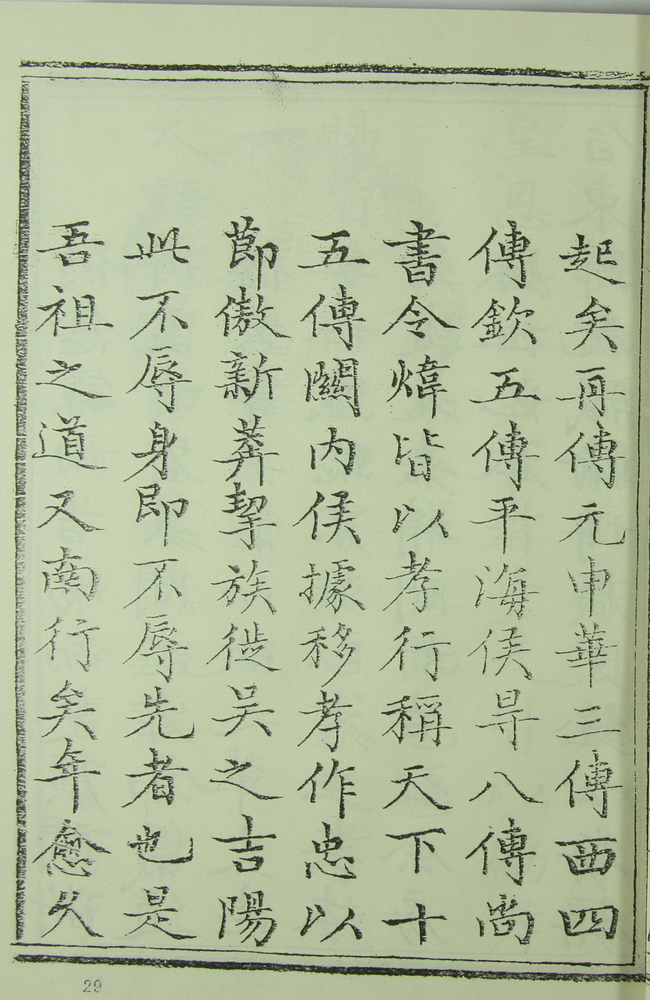 起矣再傳元申華三傳西四
傳欽五傳平海侯昇八傳尚
書令煒皆以孝行稱天下十
五傳關內侯據移孝作忠以
節傲新莽挈族徙吴之吉陽
此不辱身即不辱先者也是
吾祖之道又南行矣年愈久
29